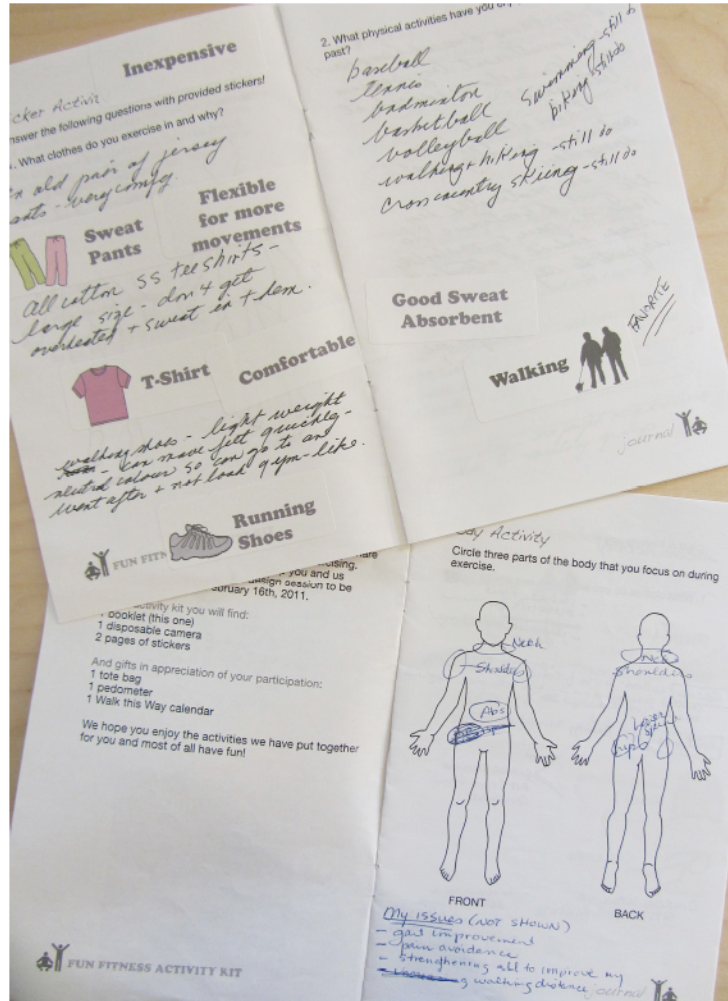 Inexpensive
cker Activit
nswer the following questions with provided stickers!
. What clothes do you exercise in and why?
n old pair of jersey
ants - very comfy.
Sweat
Pants
Flexible
for more
movements
All cotton SS tee shirts -
large size - don't get
overheated + sweat in them.
T-Shirt
Comfortable
walking shoes - light weight
- can move feet quickly -
neutral colour so can go to an
event after + not look gym-like.
Running
Shoes
FUN FITN
2. What physical activities have you
past?
baseball
tennis
badminton
basketball
volleyball
swimming - still do
biking - still do
walking + hiking - still do
cross country skiing - still do
Good Sweat
Absorbent
Walking
FAVORITE
journal
ising.
you and us
esign session to be
bruary 16th, 2011.
activity kit you will find:
1 booklet (this one)
1 disposable camera
2 pages of stickers
And gifts in appreciation of your participation:
1 tote bag
1 pedometer
1 Walk this Way calendar
We hope you enjoy the activities we have put together
for you and most of all have fun!
FUN FITNESS ACTIVITY KIT
dy Activity
Circle three parts of the body that you focus on during
exercise.
Neck
Shoulders
Abs
Neck
Shoulders
Lower
Spine
FRONT
BACK
My issues (NOT SHOWN)
- gait improvement
- pain avoidance
- strengthening all to improve my
walking distance
journal